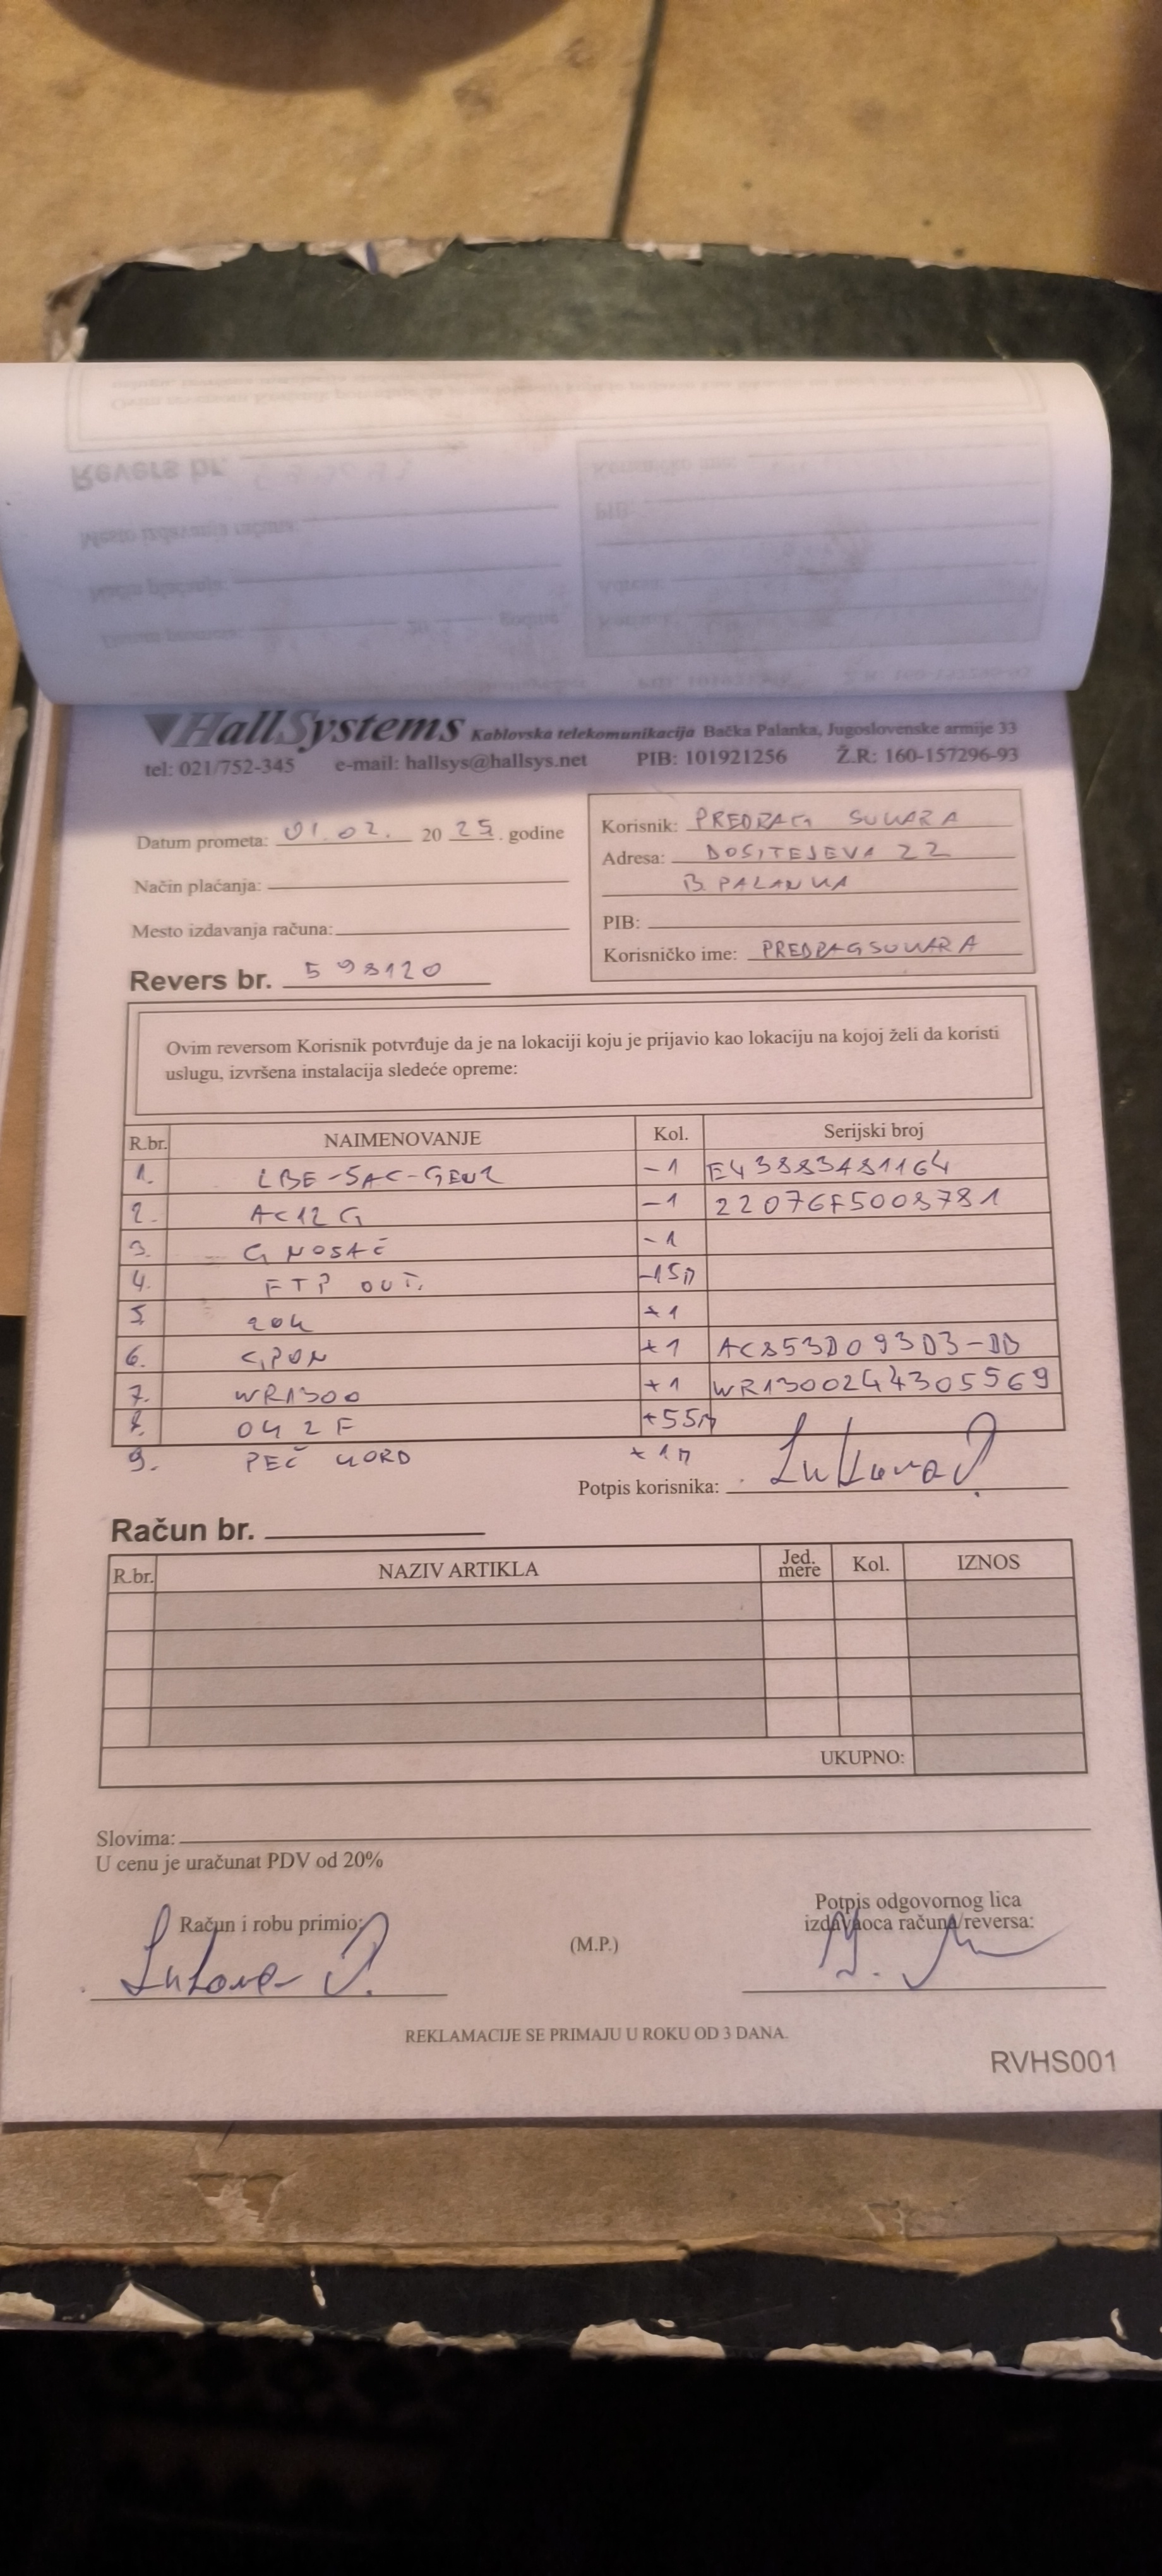 HallSystems Kablovska telekomunikacija Bačka Palanka, Jugoslovenske armije 33
tel: 021/752-345 e-mail: hallsys@hallsys.net PIB: 101921256 Ž.R: 160-157296-93
Datum prometa: 01.02. 20 25. godine
Način plaćanja:
Mesto izdavanja računa:
Revers br. 598120
Korisnik: PREDRAG SUKARA
Adresa: DOSITEJEVA 22
B. PALANKA
PIB:
Korisničko ime: PREDRAGSUKARA
Ovim reversom Korisnik potvrđuje da je na lokaciji koju je prijavio kao lokaciju na kojoj želi da koristi
uslugu, izvršena instalacija sledeće opreme:
R.br. NAIMENOVANJE Kol. Serijski broj
1. LBE-5AC-GEN2 -1 E43883481164
2. AC12G -1 22076F5008781
3. G NOSAČ -1
4. FTP OUT. -15m
5. ZOK +1
6. GPON +1 AC853D093D3-DD
7. WR1300 +1 WR1300244305569
8. OK 2F +55m
9. PEČ KORD +1m
Potpis korisnika:
Račun br.
R.br. NAZIV ARTIKLA Jed. mere Kol. IZNOS
UKUPNO:
Slovima:
U cenu je uračunat PDV od 20%
Račun i robu primio:
(M.P.)
Potpis odgovornog lica
izdavaoca računa/reversa:
REKLAMACIJE SE PRIMAJU U ROKU OD 3 DANA.
RVHS001